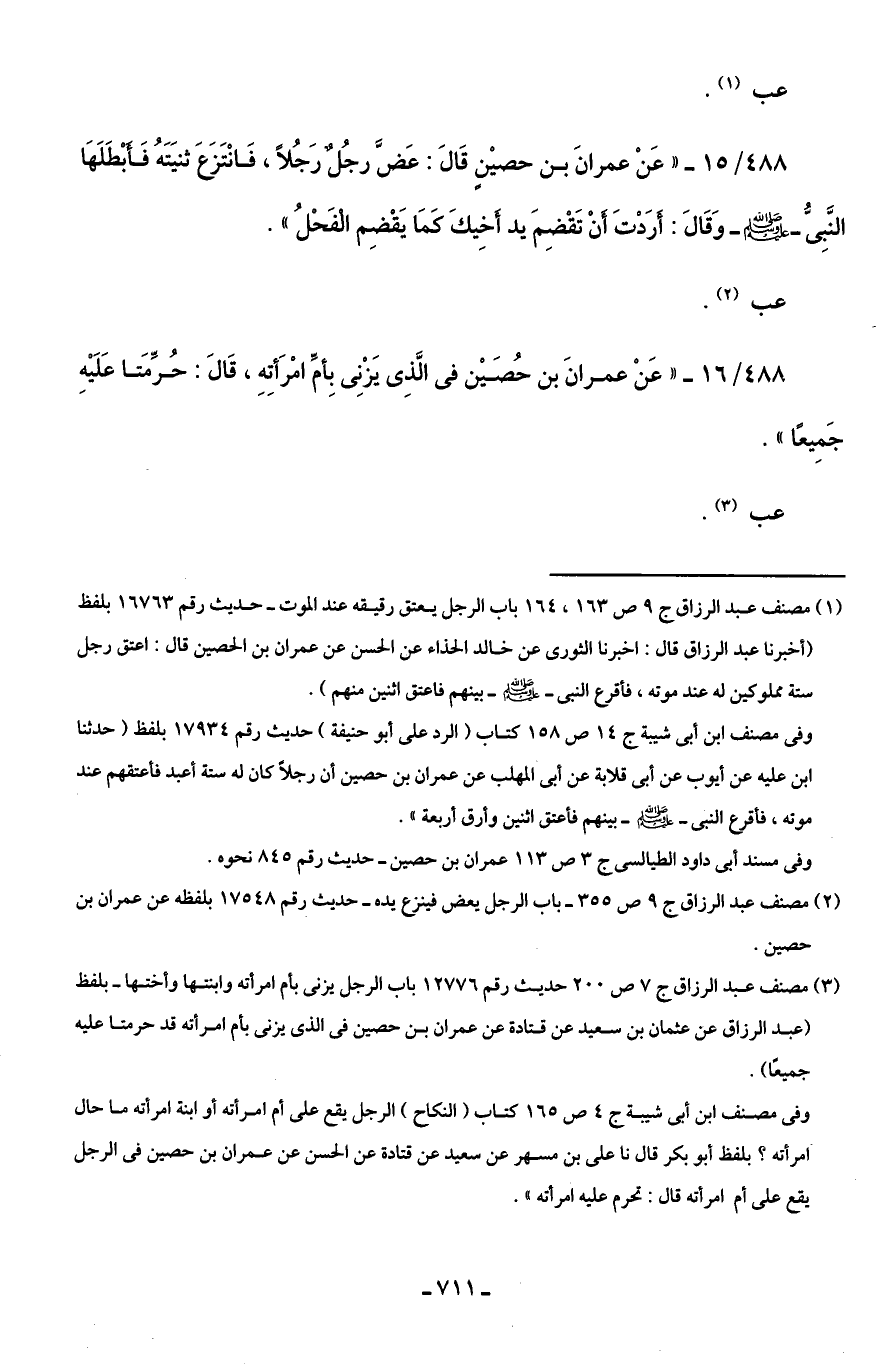 عب (١) .
٤٨٨/ ١٥ ـ « عَنْ عمرانَ بـن حصيْنٍ قَالَ : عَضَّ رجلٌ رَجُلاً ، فَـانْتَزَعَ ثنيَتَهُ فَـأَبْطَلَهَا
النَّبِىُّ ـ ﷺ ـ وَقَالَ : أَرَدْتَ أَنْ تَقْضِمَ يد أَخيكَ كَمَا يَقْضِم الْفَحْلُ » .
عب (٢) .
٤٨٨/ ١٦ ـ « عَنْ عمـرانَ بن حُصَيْن فى الَّذِى يَزْنِى بِأمِّ امْرَأتِهِ ، قَالَ : حُـرِّمَتَـا عَلَيْهِ
جَمِيعًا » .
عب (٣) .
(١) مصنف عـبد الرزاق ج ٩ ص ١٦٣ ، ١٦٤ باب الرجل يـعتق رقيـقه عند الموت ـ حـديث رقم ١٦٧٦٣ بلفظ
(أخبرنا عبد الرزاق قال : اخبرنا الثورى عن خـالد الحذاء عن الحسن عن عمران بن الحصين قال : اعتق رجل
ستة مملوكين له عند موته ، فأقرع النبى ـ ﷺ ـ بينهم فاعتق اثنين منهم ) .
وفى مصنف ابن أبى شيبة ج ١٤ ص ١٥٨ كتـاب ( الرد على أبو حنيفة ) حديث رقم ١٧٩٣٤ بلفظ ( حدثنا
ابن عليه عن أيوب عن أبى قلابة عن أبى المهلب عن عمران بن حصين أن رجلاً كان له ستة أعبد فأعتقهم عند
موته ، فأقرع النبى ـ ﷺ ـ بينهم فأعتق اثنين وأرق أربعة » .
وفى مسند أبى داود الطيالسى ج ٣ ص ١١٣ عمران بن حصين ـ حديث رقم ٨٤٥ نحوه .
(٢) مصنف عبد الرزاق ج ٩ ص ٣٥٥ ـ باب الرجل يعض فينزع يده ـ حديث رقم ١٧٥٤٨ بلفظه عن عمران بن
حصين .
(٣) مصنف عـبد الرزاق ج ٧ ص ٢٠٠ حديـث رقم ١٢٧٧٦ باب الرجل يزنى بأم امرأته وابنتـها وأختـها ـ بلفظ
(عبـد الرزاق عن عثمان بن سـعيد عن قـتادة عن عمران بـن حصين فى الذى يزنى بأم امـرأته قد حرمتـا عليه
جميعًا) .
وفى مصـنف ابن أبى شيبـة ج ٤ ص ١٦٥ كتـاب ( النكاح ) الرجل يقع على أم امـرأته أو ابنة امرأته مـا حال
امرأته ؟ بلفظ أبو بكر قال نا على بن مسـهر عن سعيد عن قتادة عن الحسن عن عـمران بن حصين فى الرجل
يقع على أم امرأته قال : تحرم عليه امرأته » .
ـ ٧١١ ـ